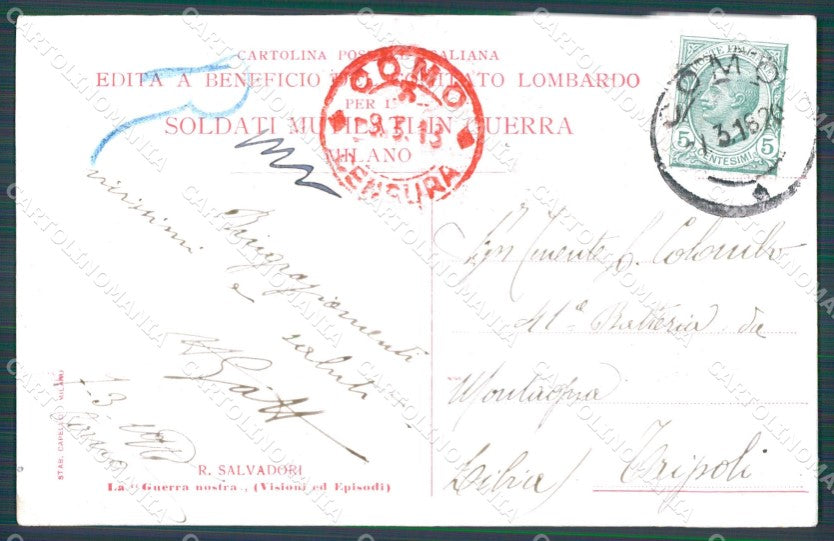 CARTOLINA POSTALE ITALIANA
EDITA A BENEFICIO DEL COMITATO LOMBARDO
PER I
SOLDATI MUTILATI IN GUERRA
MILANO
COMO
CENSURA
COMO
POSTE ITALIANE
5 CENTESIMI 5
Ringraziamenti
vivissimi e saluti
Sig. Tenente G. Colombo
41ª Batteria da
Montagna
(Libia) Tripoli
STAB. CAPELLI - MILANO
R. SALVADORI
La "Guerra nostra", (Visioni ed Episodi)
CARTOLINOMANIA